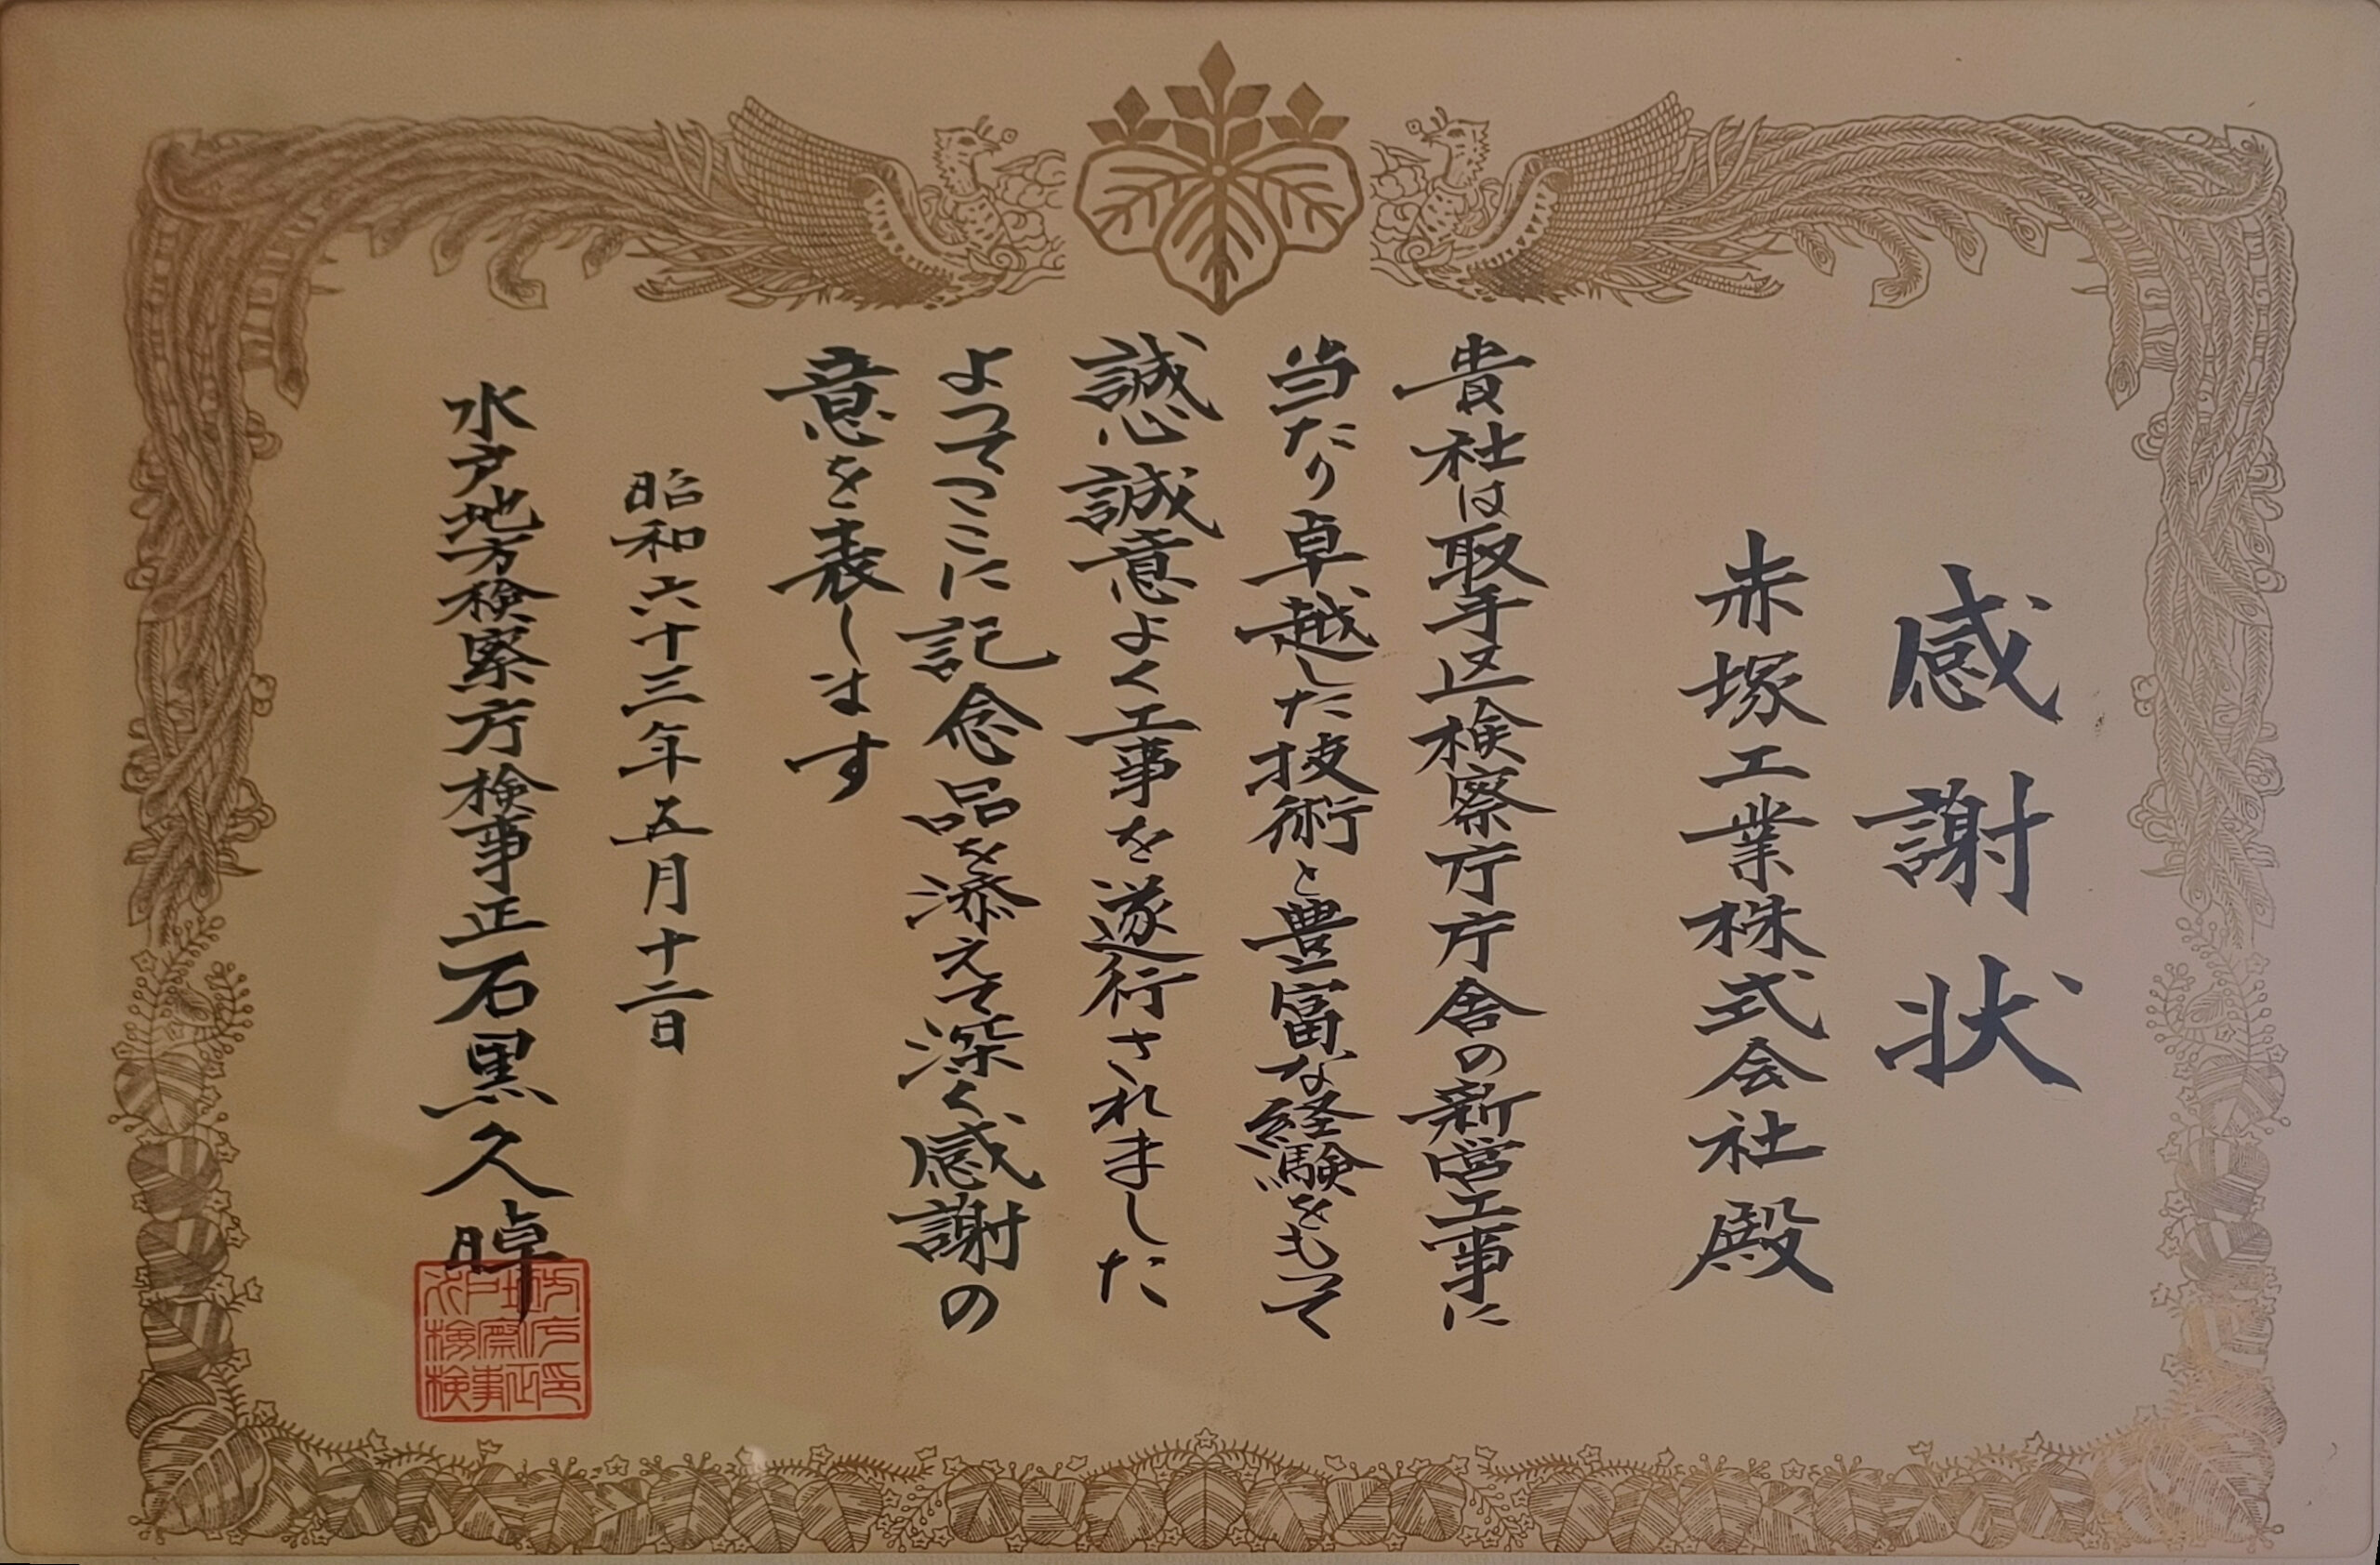 感謝状
赤塚工業株式会社殿
貴社は取手区検察庁庁舎の新営工事に
当たり卓越した技術と豊富な経験をもって
誠心誠意よく工事を遂行されました
よってここに記念品を添えて深く感謝の
意を表します
昭和六十三年五月十二日
水戸地方検察庁検事正石黒久晫
水戸地方
検察庁
検事正印